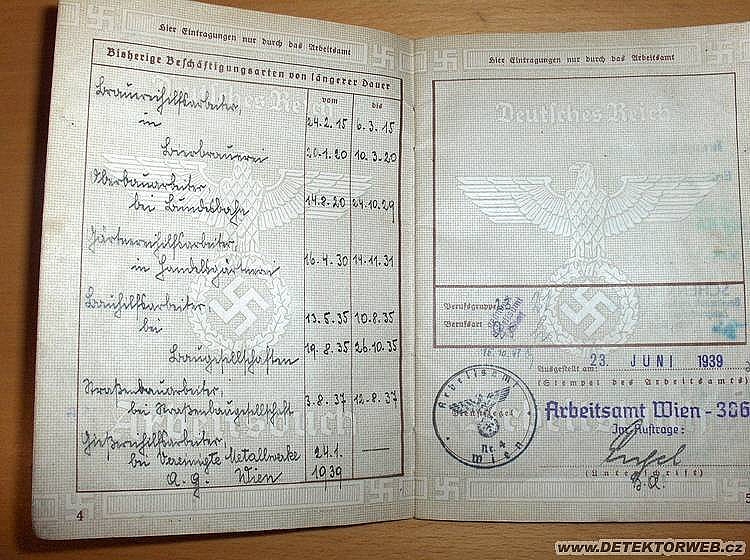 Hier Eintragungen nur durch das Arbeitsamt
Bisherige Beschäftigungsarten von längerer Dauer
vom bis
Brauereihilfsarbeiter,
in
24.2.15 6.3.15
Bierbrauerei 20.1.20 10.3.20
Oberbauarbeiter,
bei Bundesbahn 14.8.20 24.10.29
Gärtnereihilfsarbeiter,
in Handelsgärtnerei 16.4.30 14.11.31
Bauhilfsarbeiter,
bei 13.5.35 10.8.35
Baugesellschaften 19.8.35 26.10.35
Straßenbauarbeiter,
bei Straßenbaugesellschaft 3.8.37 12.8.37
Gießereihilfsarbeiter,
bei Vereinigte Metallwerke 24.1.
A.G. Wien 1939
Deutsches Reich
Arbeitsbuch
4
Hier Eintragungen nur durch das Arbeitsamt
Deutsches Reich
Berufsgruppe
Berufsart
Ausgestellt am: 23. JUNI 1939
(Stempel des Arbeitsamts)
Arbeitsamt
Dienstsiegel
Nr. 4
Wien
Arbeitsamt Wien - 306
Im Auftrage:
(Unterschrift)
5
www.DETEKTORWEB.cz